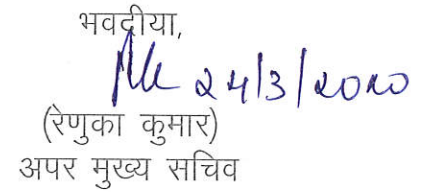 भवदीया,
24/3/2020
(रेणुका कुमार)
अपर मुख्य सचिव